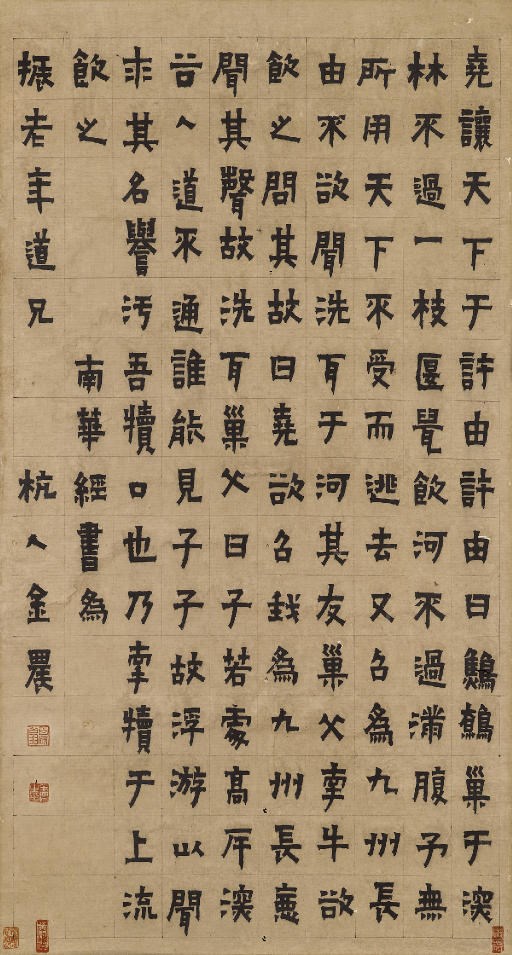 堯讓天下于許由許由曰鷦鷯巢于深
林不過一枝偃鼠飲河不過滿腹予無
所用天下不受而逃去又召為九州長
由不欲聞洗耳于河其友巢父牽牛欲
飲之問其故曰堯欲召我為九州長惡
聞其聲故洗耳巢父曰子若處高岸深
谷人道不通誰能見子子故浮游以聞
求其名譽汚吾犢口也乃牽犢于上流
飲之 南華經書為
振老年道兄 杭人金農